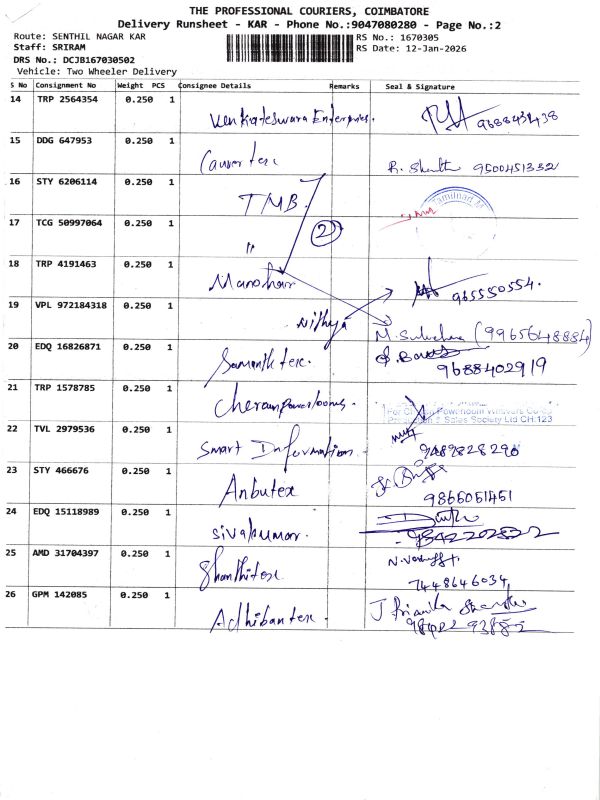 THE PROFESSIONAL COURIERS, COIMBATORE
Delivery Runsheet - KAR - Phone No.:9047080280 - Page No.:2
Route: SENTHIL NAGAR KAR
RS No.: 1670305
Staff: SRIRAM
RS Date: 12-Jan-2026
DRS No.: DCJB167030502
Vehicle: Two Wheeler Delivery
S No Consignment No Weight PCS Consignee Details Remarks Seal & Signature
14 TRP 2564354 0.250 1 Venkateswara Enterprises.
15 DDG 647953 0.250 1 9500451332
16 STY 6206114 0.250 1 TMB. Tamilnad
17 TCG 50997064 0.250 1 " 2
18 TRP 4191463 0.250 1 Manohar 965550554.
19 VPL 972184318 0.250 1 Nithya (9965648884)
20 EDQ 16826871 0.250 1 9688402919
21 TRP 1578785 0.250 1 & Sales Society Ltd CH:123
22 TVL 2979536 0.250 1 Smart Information. 9489828290
23 STY 466676 0.250 1 Anbutex 9866051451
24 EDQ 15118989 0.250 1 Sivakumar.
25 AMD 31704397 0.250 1 Shanthitex 7448646034
26 GPM 142085 0.250 1 Adhibantex.